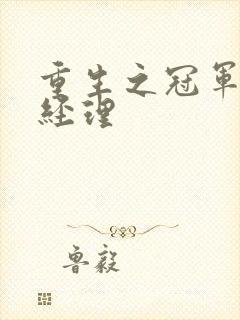 重生之冠軍
經理
魯毅